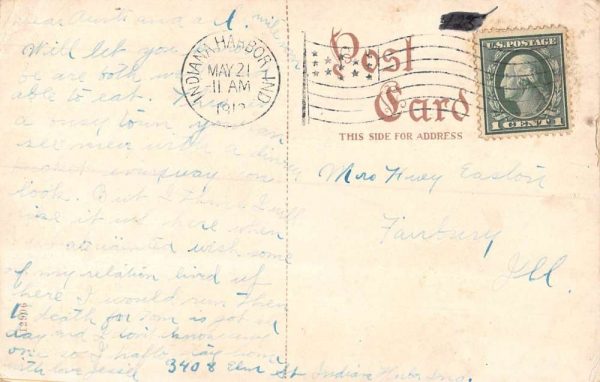 Dear Aunt and a
Will let you
we are both w
able to eat. This is
a busy town you can
see men with a dinner
every way you
look. But I think I will
like it up here when
I get acquainted wish some
of my relation lived up
here I would run them
to death for Tom is got all
day and I don't know any
one so I hafto stay home
with love
3408 Elm St Indiana Harbor Ind.
INDIANA HARBOR, IND.
MAY 21
11 AM
Post
Card
THIS SIDE FOR ADDRESS
U.S. POSTAGE
1 CENT 1
Mrs Huey Easton
Fairbury
Ill.